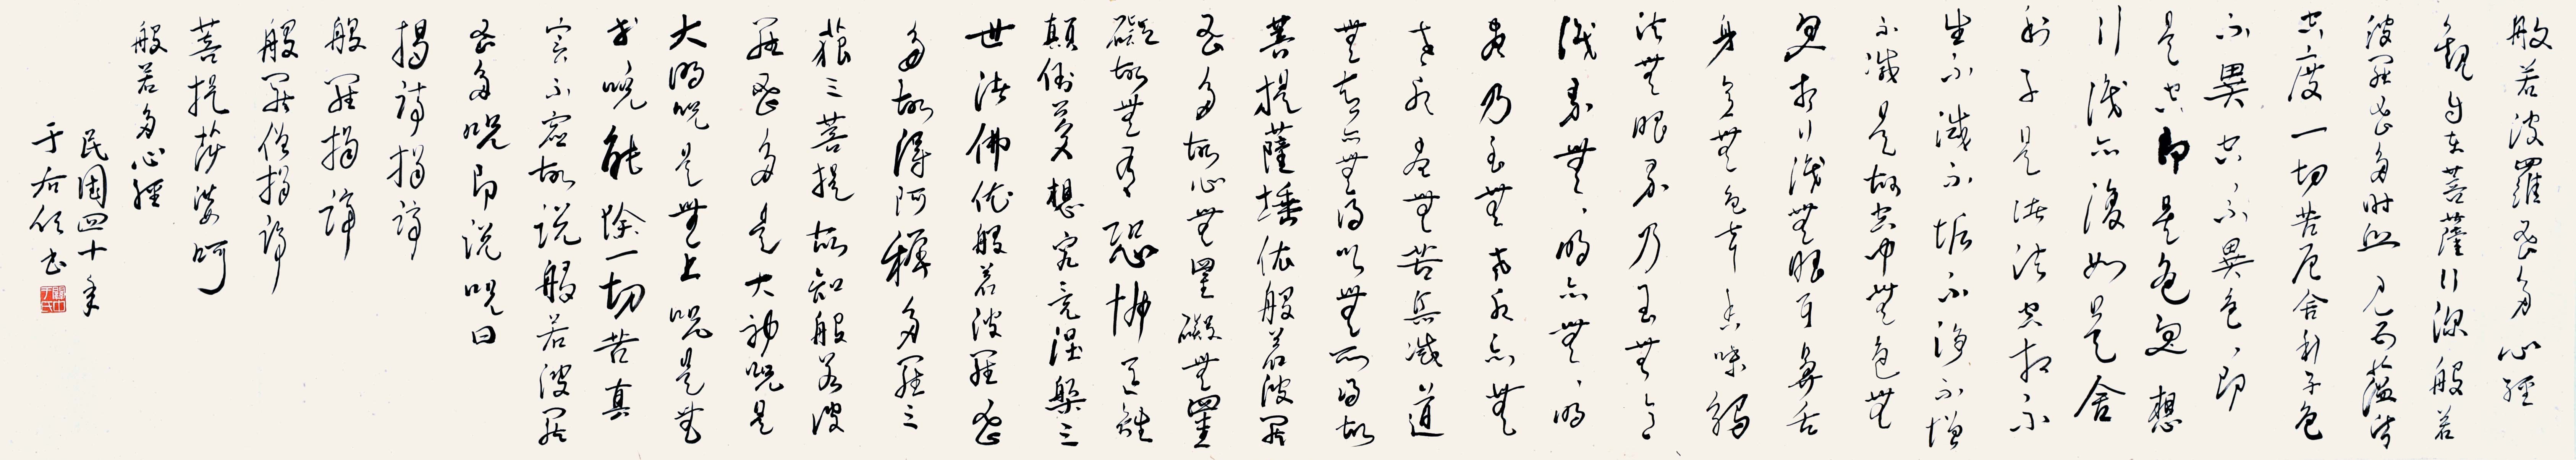 般若波羅密多心經
觀自在菩薩行深般若
波羅密多時照見五蘊皆
空度一切苦厄舍利子色
不異空空不異色色即
是空即是色受想
行識亦復如是舍
利子是諸法空相不
生不滅不垢不淨不增
不減是故空中無色無
受想行識無眼耳鼻舌
身意無色聲香味觸
法無眼界乃至無意
識界無無明亦無無明
盡乃至無老死亦無
老死盡無苦集滅道
無智亦無得以無所得故
菩提薩埵依般若波羅
密多故心無罣礙無罣
礙故無有恐怖遠離
顛倒夢想究竟涅槃三
世諸佛依般若波羅密
多故得阿耨多羅三
藐三菩提故知般若波
羅密多是大神咒是
大明咒是無上咒是無
等咒能除一切苦真
實不虛故說般若波羅
密多咒即說咒曰
揭諦揭諦
般羅揭諦
般羅僧揭諦
菩提莎婆呵
般若多心經
民國四十年
于右任書